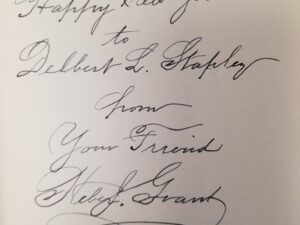 Happy New
to
Delbert L. Stapley
from
Your Friend
Heber J. Grant